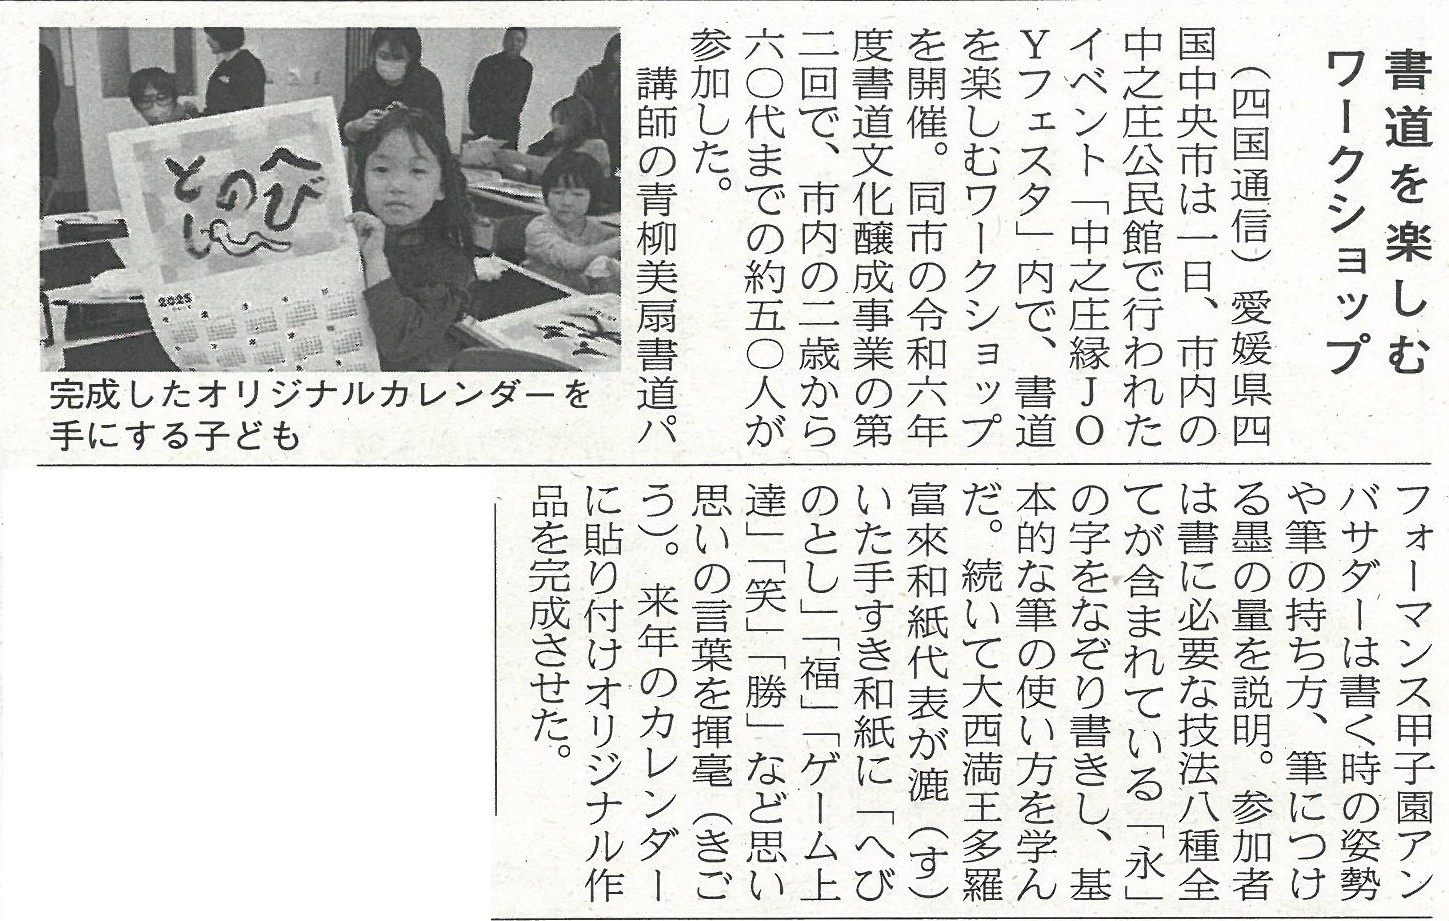 書道を楽しむ
ワークショップ
(四国通信)愛媛県四
国中央市は一日、市内の
中之庄公民館で行われた
イベント「中之庄縁JO
Yフェスタ」内で、書道
を楽しむワークショップ
を開催。同市の令和六年
度書道文化醸成事業の第
二回で、市内の二歳から
六〇代までの約五〇人が
参加した。
講師の青柳美扇書道パ
フォーマンス甲子園アン
バサダーは書く時の姿勢
や筆の持ち方、筆につけ
る墨の量を説明。参加者
は書に必要な技法八種全
てが含まれている「永」
の字をなぞり書きし、基
本的な筆の使い方を学ん
だ。続いて大西満王多羅
富來和紙代表が漉(す)
いた手すき和紙に「へび
のとし」「福」「ゲーム上
達」「笑」「勝」など思い
思いの言葉を揮毫(きご
う)。来年のカレンダー
に貼り付けオリジナル作
品を完成させた。
へび
の
とし
2025
完成したオリジナルカレンダーを
手にする子ども